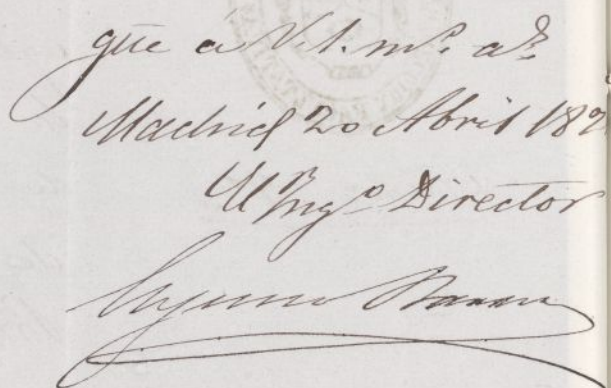 gue a V. I. ms. as.
Madrid 20 Abril 18
El Ingo Director
Eugenio Barron